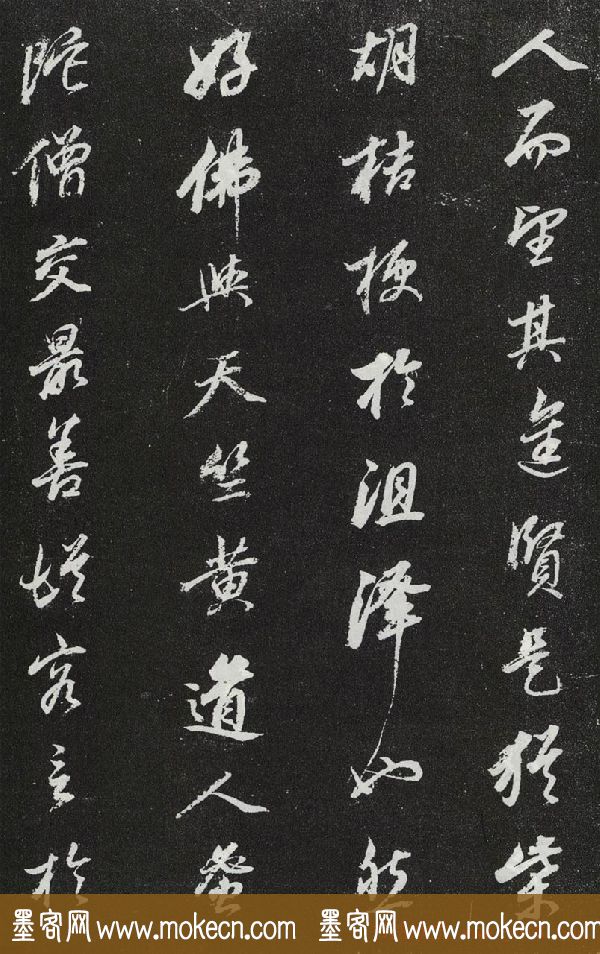 人而望其進賢是猶柴
胡桔梗於沮澤也然
好佛與天竺黃道人密
陀僧交最善從容言於
墨客网 www.mokecn.com 墨客网 www.mokecn.com